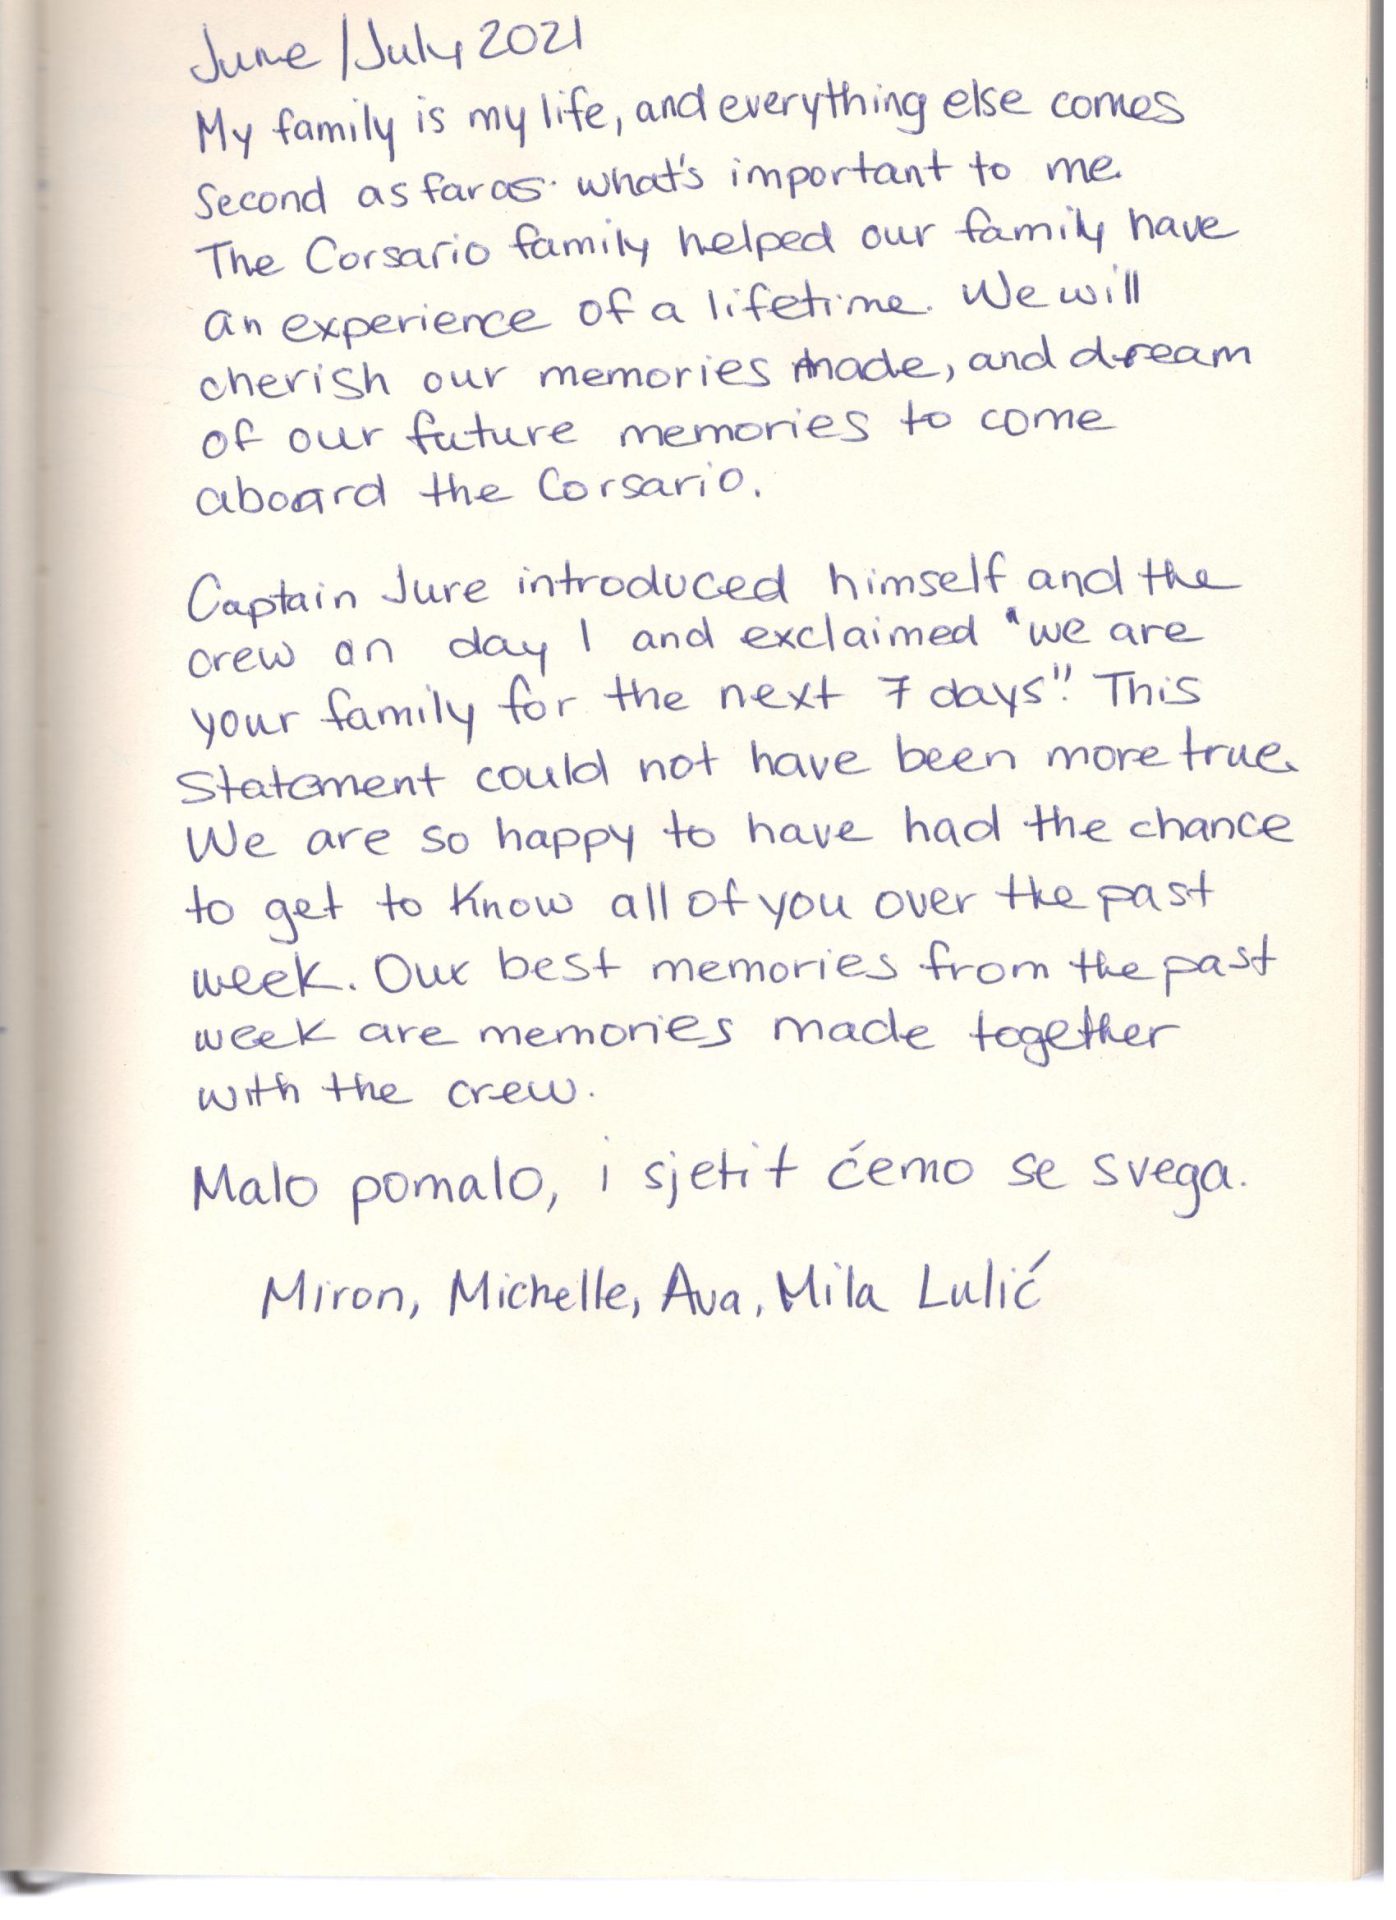 June/July 2021
My family is my life, and everything else comes
second as far as what's important to me.
The Corsario family helped our family have
an experience of a lifetime. We will
cherish our memories made, and dream
of our future memories to come
aboard the Corsario.
Captain Jure introduced himself and the
crew on day 1 and exclaimed "we are
your family for the next 7 days"! This
statement could not have been more true.
We are so happy to have had the chance
to get to know all of you over the past
week. Our best memories from the past
week are memories made together
with the crew.
Malo pomalo, i sjetit ćemo se svega.
Miron, Michelle, Ava, Mila Lulić